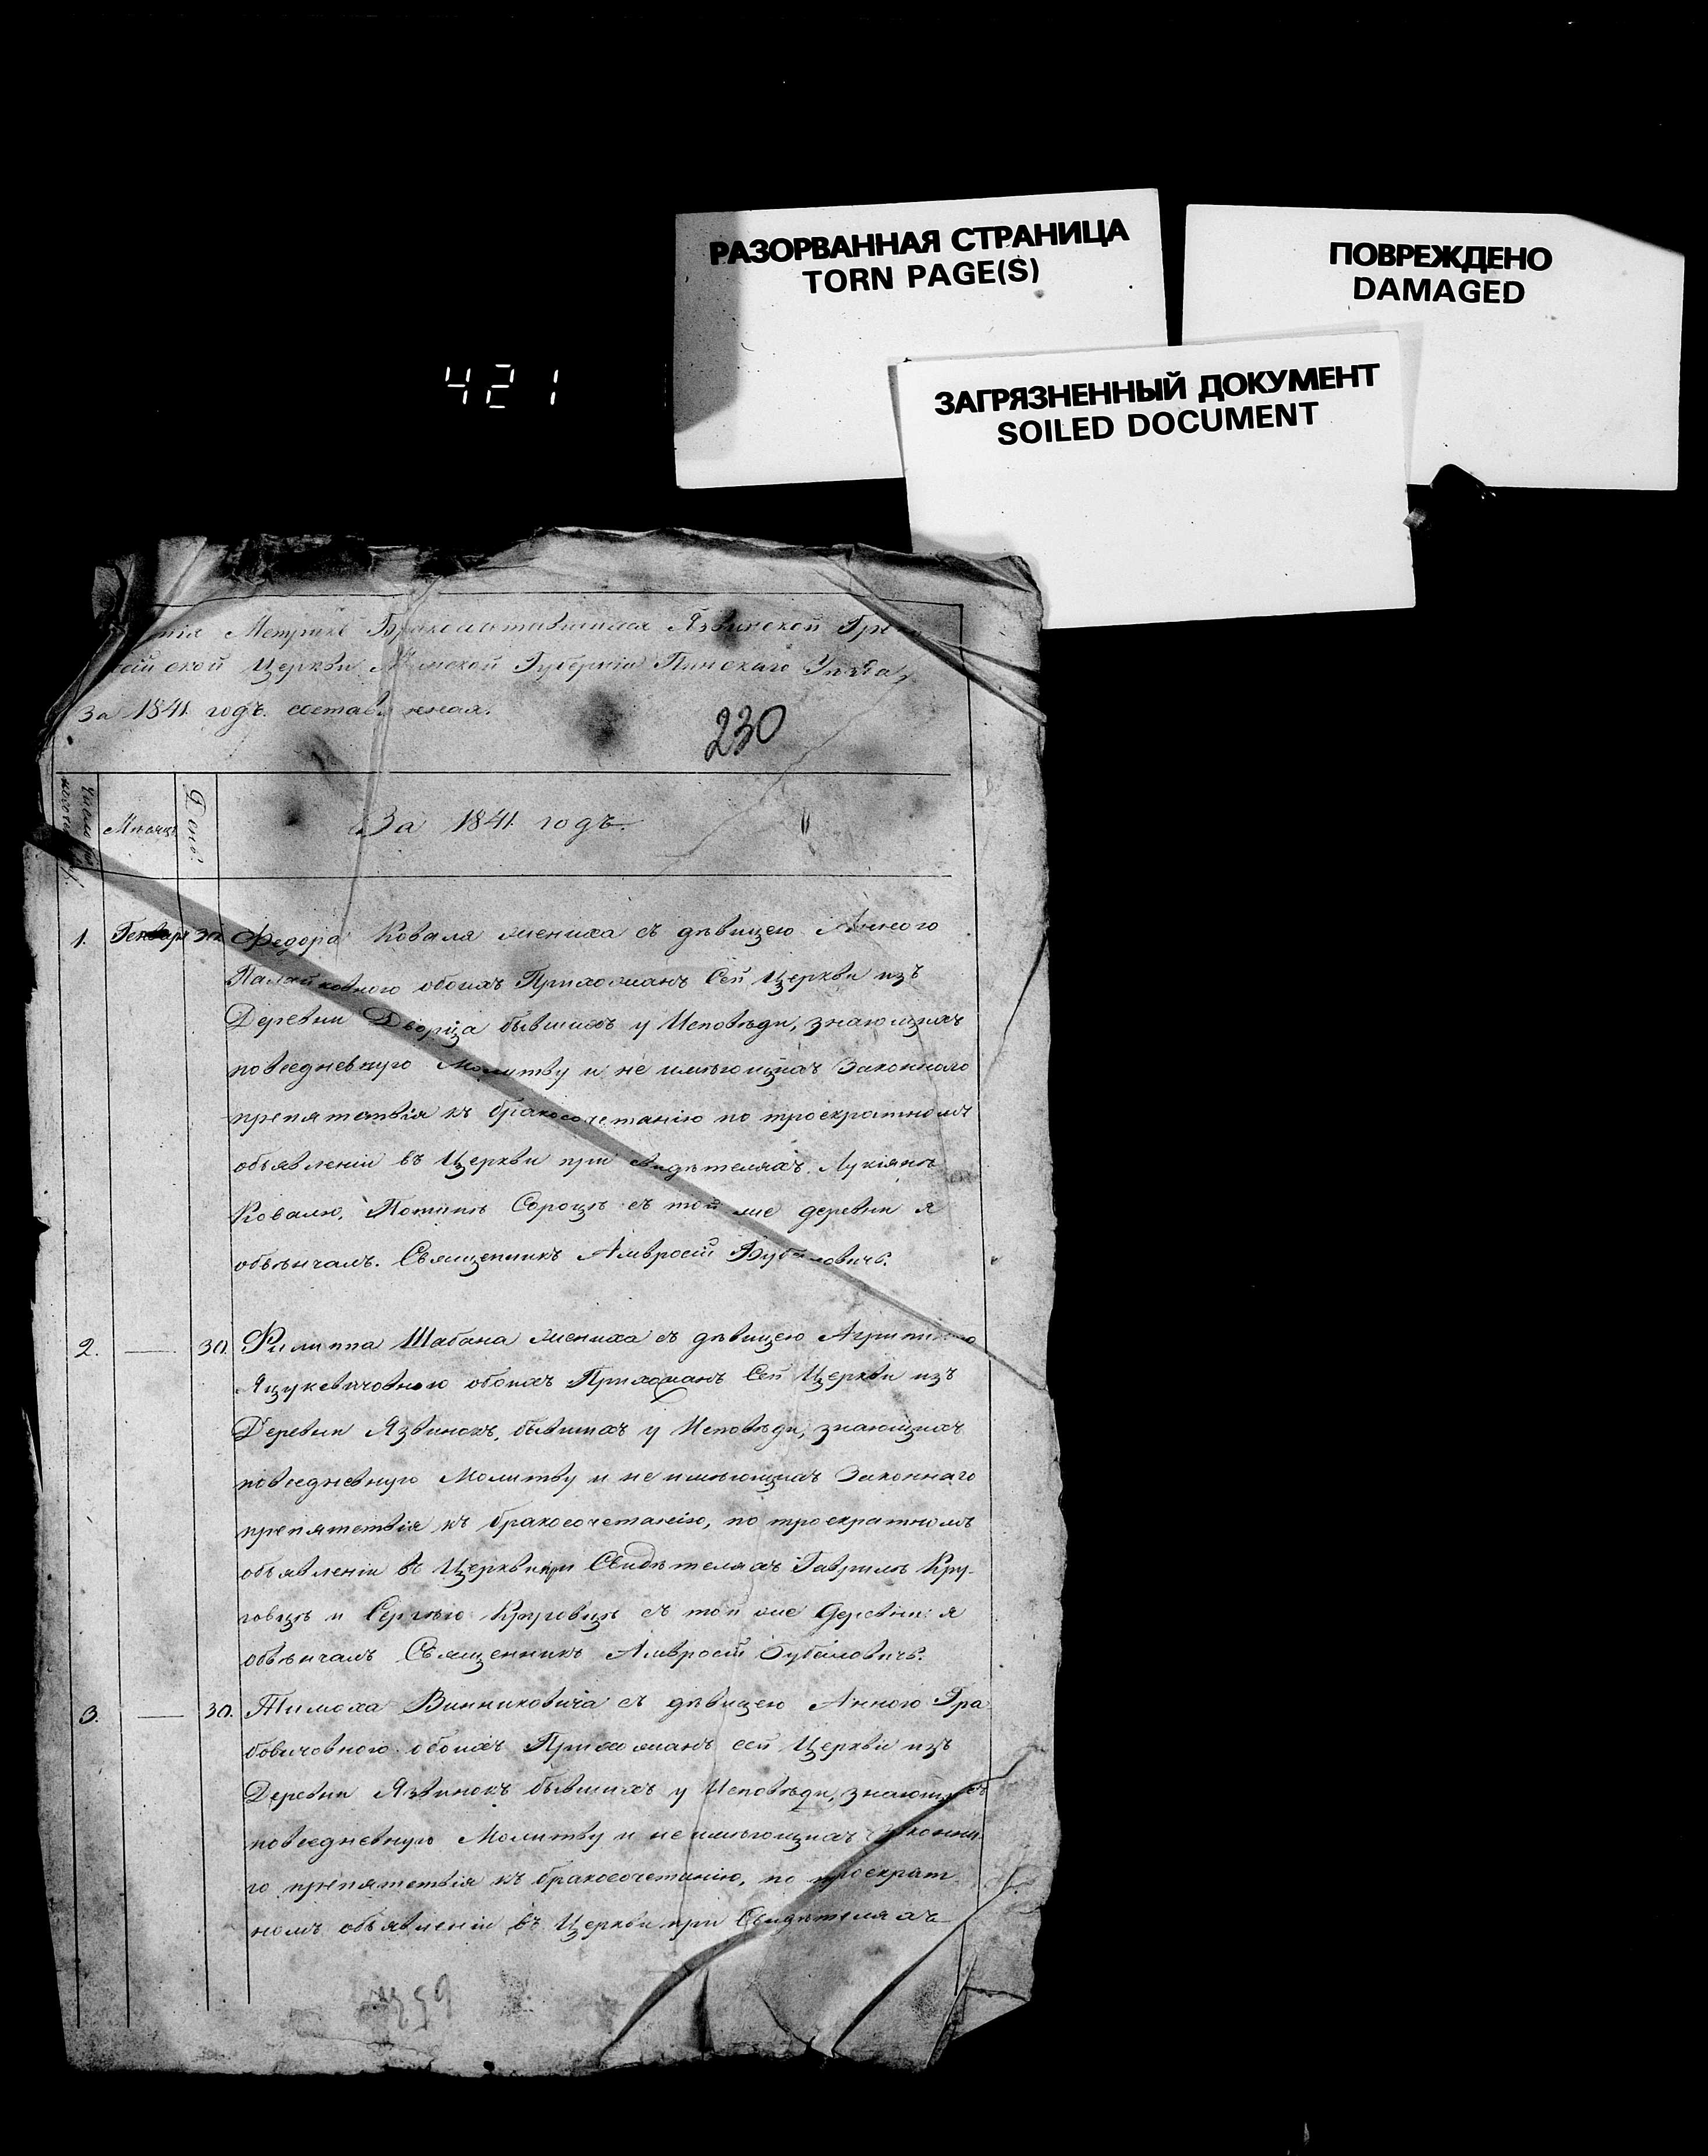 РАЗОРВАННАЯ СТРАНИЦА
TORN PAGE(S)
ПОВРЕЖДЕНО
DAMAGED
ЗАГРЯЗНЕННЫЙ ДОКУМЕНТ
SOILED DOCUMENT
421
Метрикъ Язвинской
Церкви Минской Губерніи Пинскаго Уѣзда,
За 1841 годъ. составленная.
230
Мѣсяцъ
День.
За 1841 годъ.
1. Генваря 30. Федора Коваля жениха съ дѣвицею Анною
обоихъ Прихожанъ Сей Церкви изъ
Деревни Дворца бывшихъ у Исповѣди, знающихъ
повседневную Молитву и не имѣющихъ Законнаго
препятствія къ бракосочетанію по троекратномъ
объявленіи въ Церкви при свидѣтеляхъ Лукіянѣ
Ковалю, Сороцѣ съ той же деревни я
обвѣнчалъ. Священникъ Амвросій Бубновичъ.
2. — 30. Филиппа Шабана жениха съ дѣвицею
Яцукевичовною обоихъ Прихожанъ Сей Церкви изъ
Деревни Язвинокъ, бывшихъ у Исповѣди, знающихъ
повседневную Молитву и не имѣющихъ Законнаго
препятствія къ бракосочетанію, по троекратномъ
объявленіи въ Церкви при Свидѣтеляхъ Гаврилѣ Кру-
говцѣ и Сергѣю Круговцѣ съ той же Деревни я
обвѣнчалъ Священникъ Амвросій
3. — 30. Тимоха Винниковича съ дѣвицею Анною Гра-
бовичовною обоихъ Прихожанъ сей Церкви изъ
Деревни Язвинокъ бывшихъ у Исповѣди, знающихъ
повседневную Молитву и не имѣющихъ Законна-
го препятствія къ бракосочетанію, по троекрат-
номъ объявленіи въ Церкви при Свидѣтеляхъ